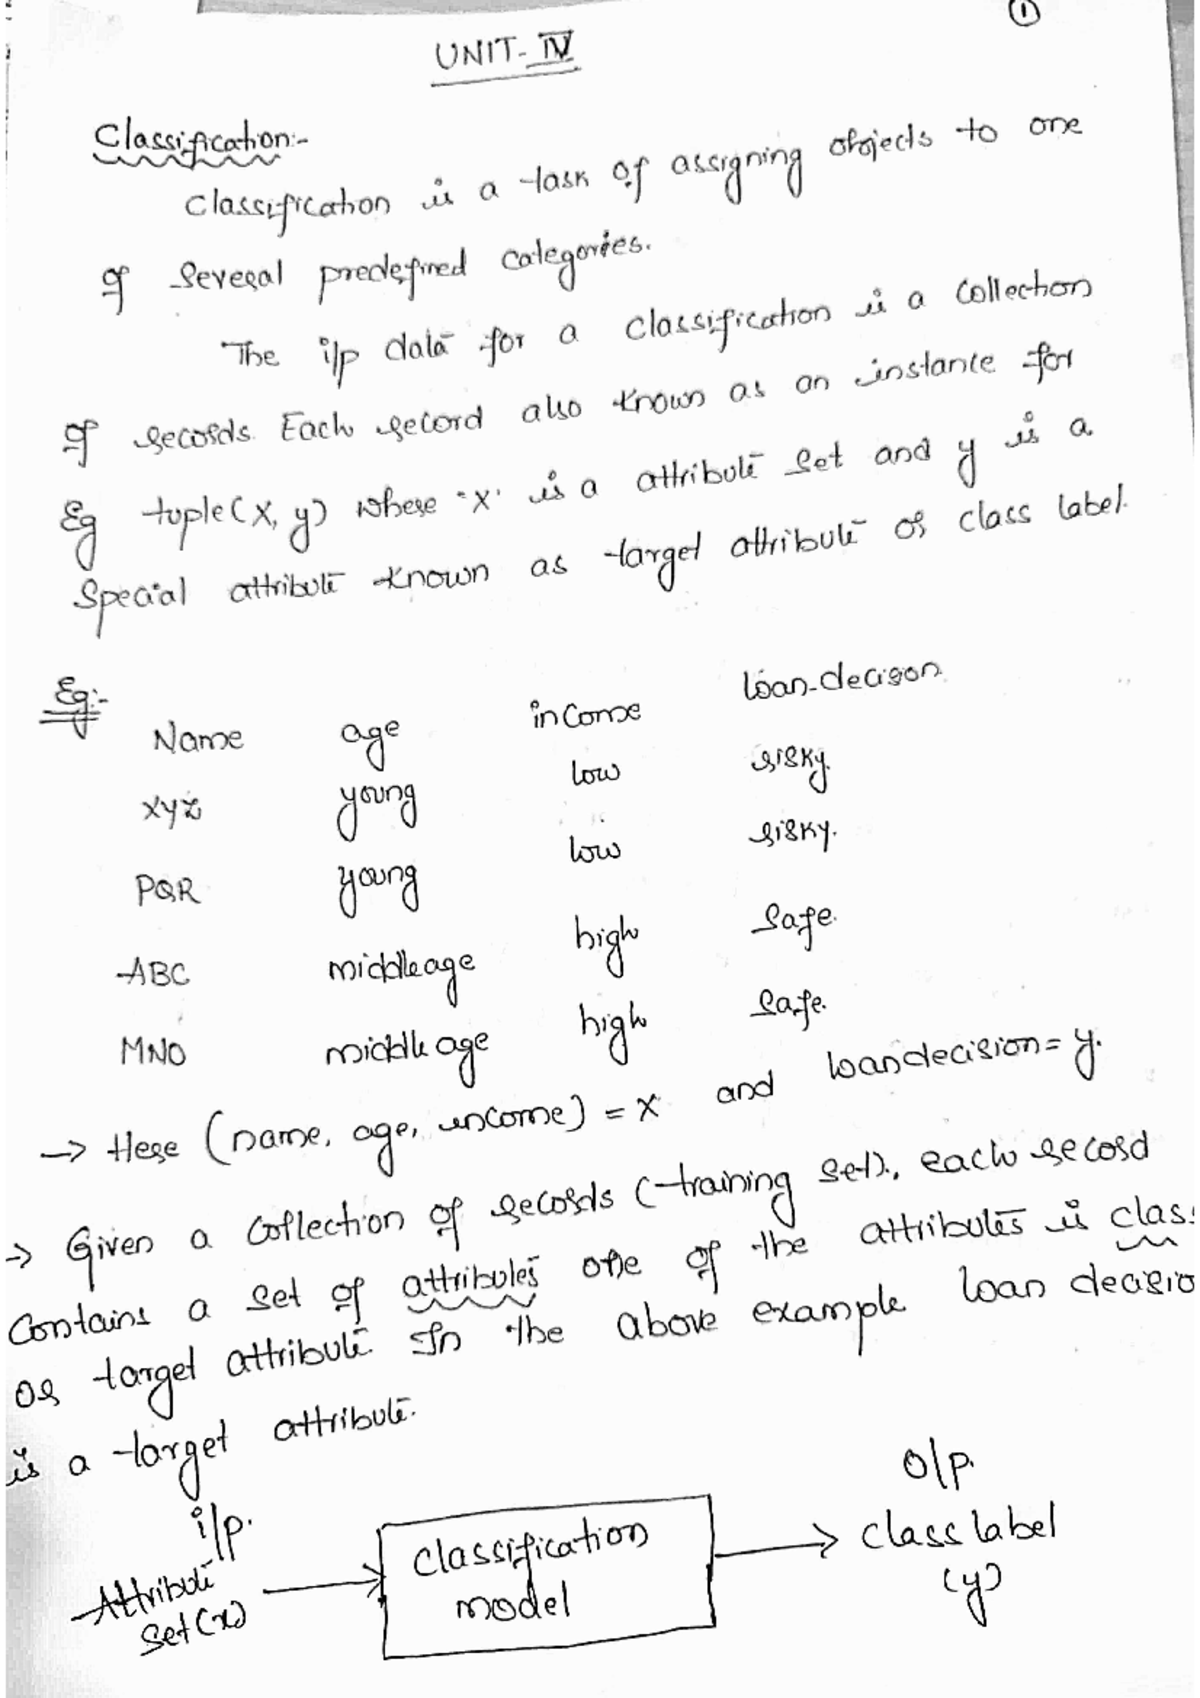 1
UNIT-IV
Classification:-
Classification is a task of assigning objects to one
of several predefined categories.
The i/p data for a classification is a collection
of records. Each record also known as an instance for
Eg tuple(x, y) where "x" is a attribute set and y is a
Special attribute known as target attribute or class label.
Eg:-
Name age income loan-decison
xyz young low risky.
PQR young low risky.
ABC middleage high safe.
MNO middle age high safe.
→ Here (name, age, income) = x and loandecision = y.
→ Given a collection of records (training set), each record
Contains a set of attributes one of the attributes is clas
or target attribute. In the above example loan decisio
is a target attribute.
i/p. O/p.
Attribute Set(x) → Classification model → class label (y)